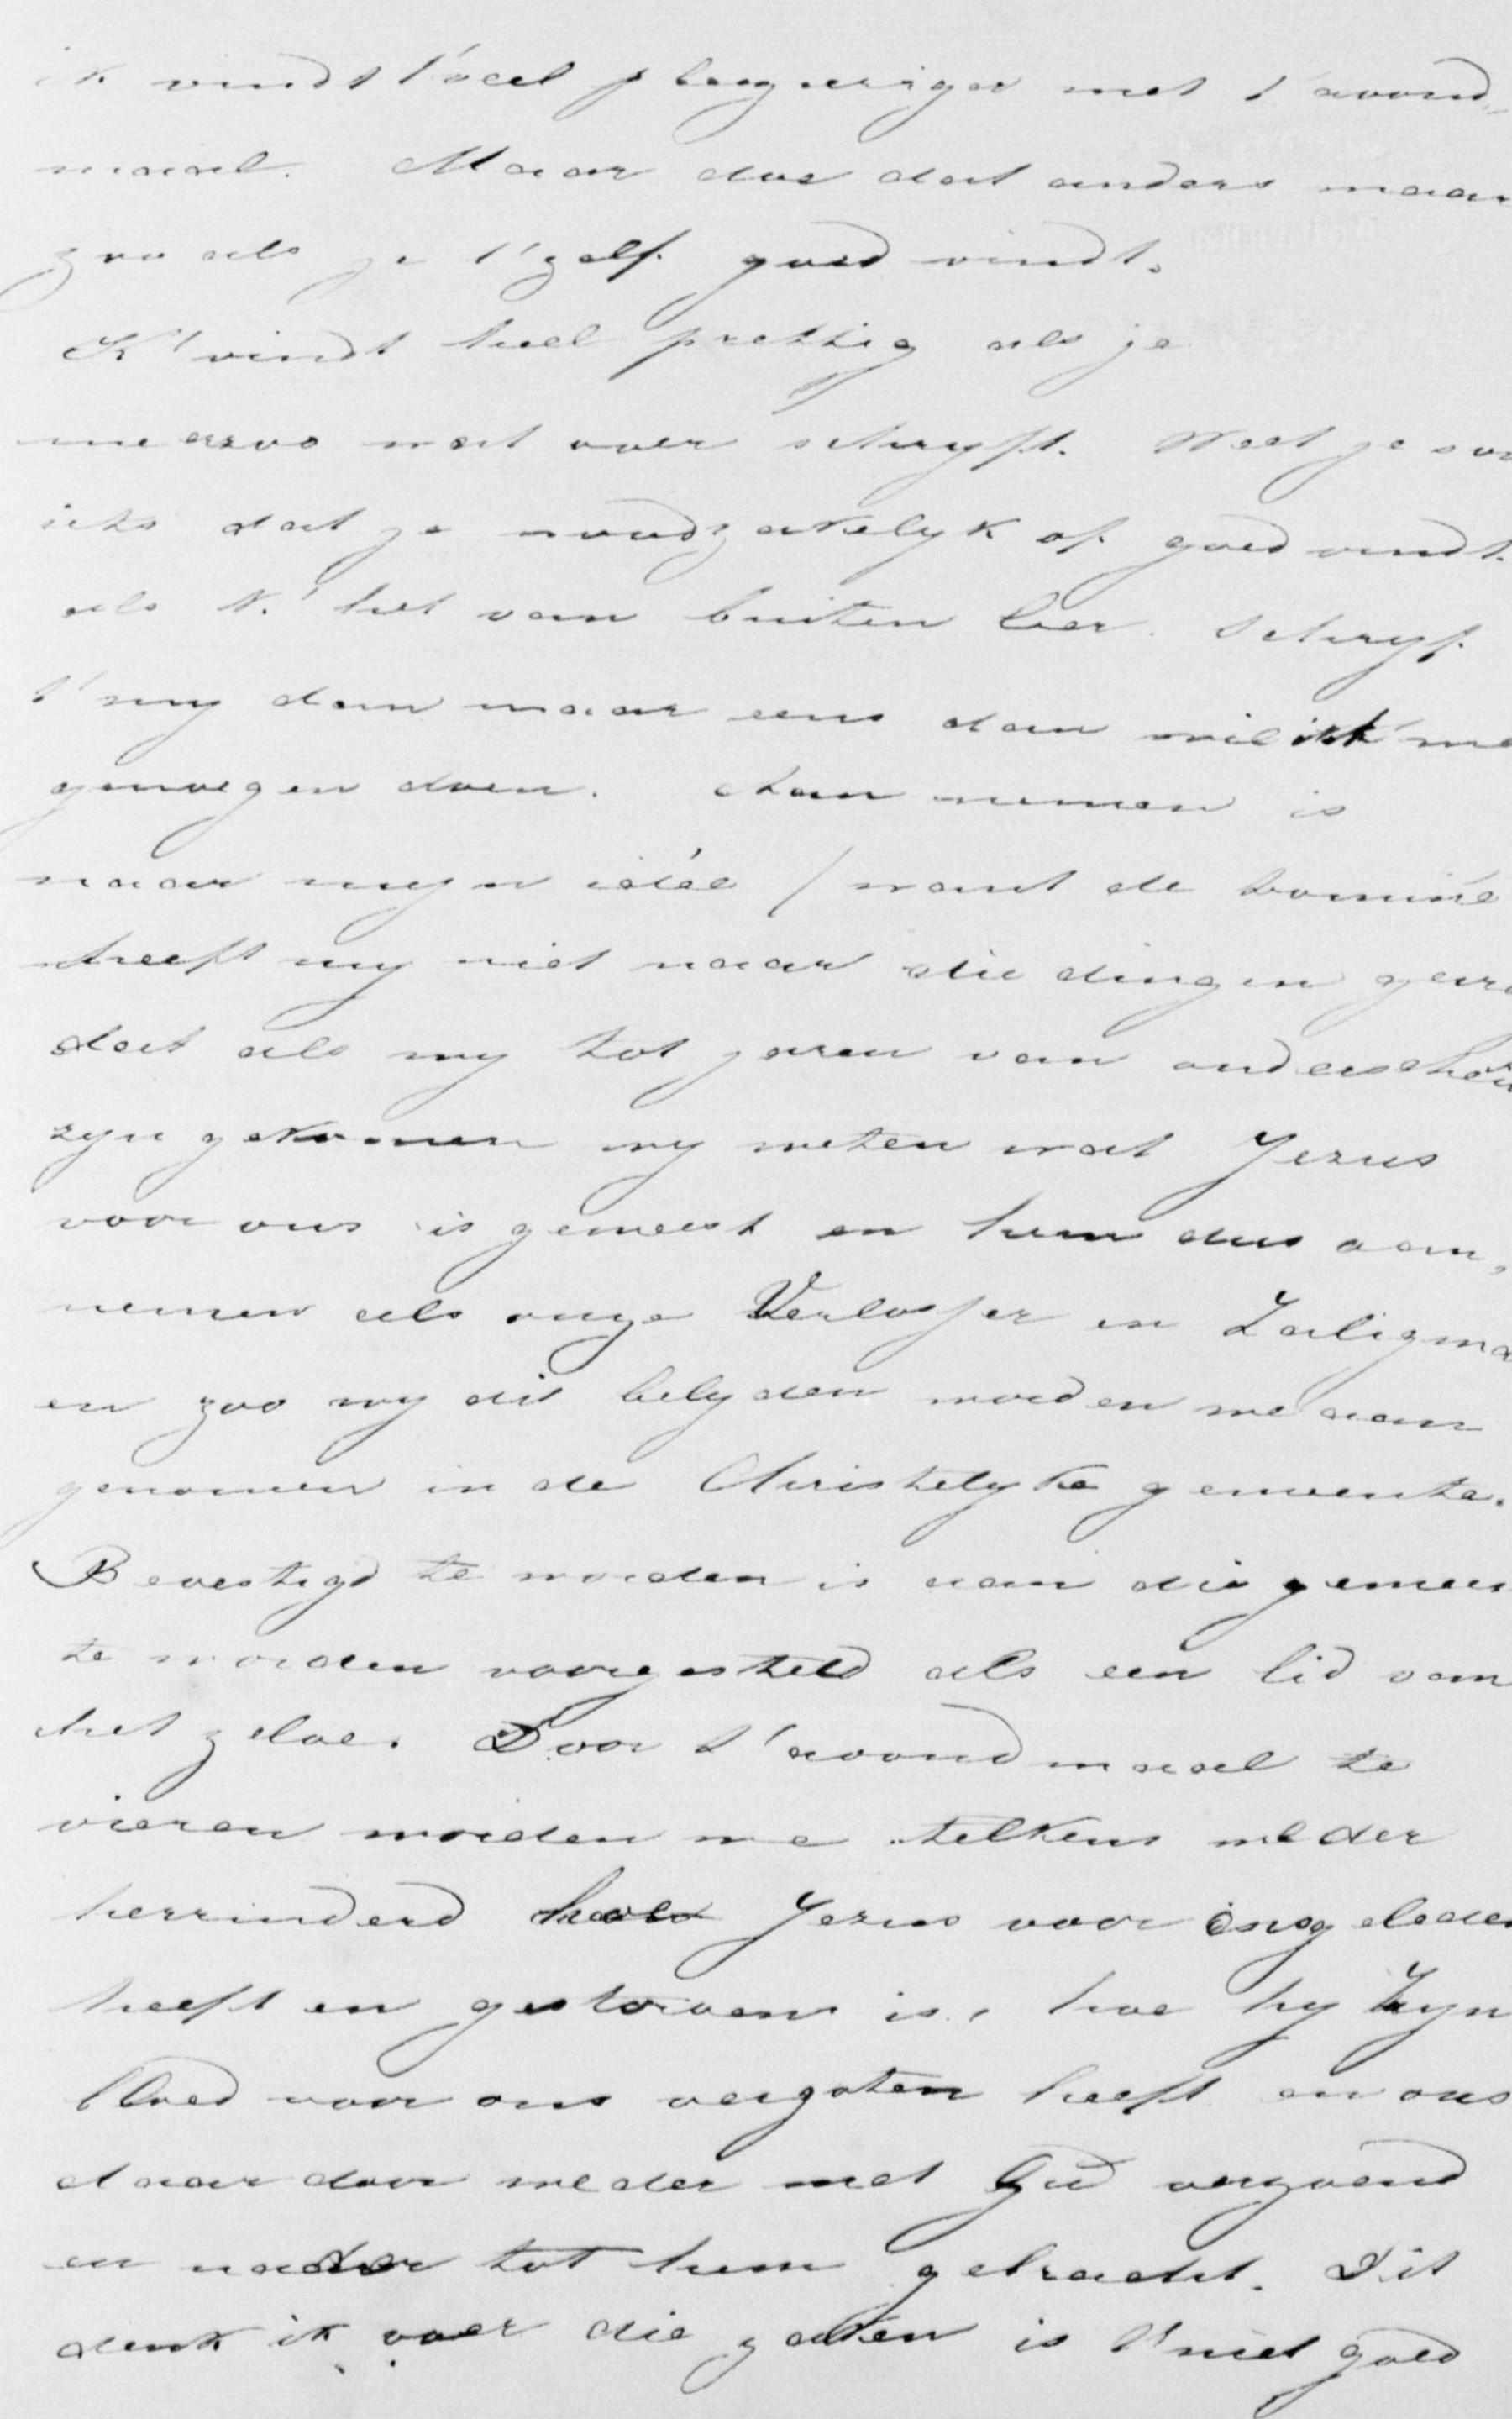 ik vindt t'veel plegtiger met t'avond-
maal. Maar doe dat anders maar
zoo als je t'zelf goed vindt.
K'vindt heel prettig als je
me er zoo wat over schryft. Weet je soo
iets dat je noodzakelyk of goed vindt
als k' het van buiten leer. Schryf
t'my dan maar eens dan wil ik me
genoegen doen. Aan nemen is
naar myn idée / want de dominé
heeft my niet naar die dingen gevra
dat als wy tot jaren van onderschei
zyn gekomen wy weten wat Jezus
voor ons is geweest en hem dus aan,
nemen als onze Verlosser en Zaligma
en zoo wy dit belyden worden we aan
genomen in de Christelyke gemeente.
Bevestigd te worden is aan die gemeen
te worden voorgesteld als een lid van
het zelve. Door t'avondmaal te
vieren worden we telkens weder
herrinderd hoe Jezus voor ons geleden
heeft en gestorven is, hoe hy Zyn
bloed voor ons vergoten heeft en ons
daar door weder met God verzoend
en nader tot hem gebracht. Dit
denk ik over die zaken is t'niet goed